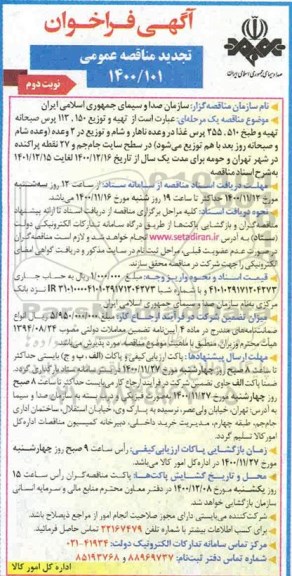 آگهی فراخوان
تجدید مناقصه عمومی
۱۴۰۰/۱۰۱
صدا و سیمای جمهوری اسلامی ایران
نوبت دوم
نام سازمان مناقصه‌گزار: سازمان صدا و سیمای جمهوری اسلامی ایران
موضوع مناقصه یک مرحله‌ای: عبارت است از تهیه و توزیع ۱۱۳،۱۵۰ پرس صبحانه
تهیه و طبخ ۳۵۵،۵۱۰ پرس غذا در وعده ناهار و شام و توزیع در ۲ وعده (وعده شام
و صبحانه روز بعد با هم توزیع می‌شود) در سطح سایت جام‌جم و ۲۷ نقطه پراکنده
در شهر تهران و حومه برای مدت یک سال از تاریخ ۱۴۰۰/۱۲/۱۶ لغایت ۱۴۰۱/۱۲/۱۵
به شرح اسناد مناقصه
مهلت دریافت اسناد مناقصه از سامانه ستاد: از ساعت ۱۲ روز سه‌شنبه
مورخ ۱۴۰۰/۱۱/۱۲ لغایت ساعت ۱۹ روز شنبه مورخ ۱۴۰۰/۱۱/۱۶ می‌باشد.
نحوه دریافت اسناد: کلیه مراحل برگزاری مناقصه از دریافت اسناد تا ارائه پیشنهاد
مناقصه‌گران و بازگشایی پاکت‌ها از طریق درگاه سامانه تدارکات الکترونیکی دولت
(ستاد) به آدرس www.setadiran.ir انجام خواهد شد و لازم است مناقصه‌گران
در صورت عدم عضویت قبلی، مراحل ثبت‌نام در سایت مذکور و دریافت گواهی امضای
الکترونیکی را جهت شرکت در مناقصه محقق سازند.
قیمت اسناد و نحوه واریز وجه: مبلغ ۱/۰۰۰/۰۰۰ ریال به حساب جاری
مرکزی به‌نام سازمان صدا و سیمای جمهوری اسلامی ایران
میزان تضمین شرکت در فرآیند ارجاع کار: مبلغ
ضمانت‌نامه‌های مندرج در ماده ۴ آیین‌نامه تضمین معاملات دولتی مصوب ۱۳۹۴/۰۸/۲۴
هیأت محترم وزیران، منطبق با ماهیت موضوع مناقصه، مورد پذیرش می‌باشد.
مهلت ارسال پیشنهادها: پاکت ارزیابی کیفی و پاکات (الف، ب و ج) بایستی حداکثر
تا ساعت ۸ صبح روز چهارشنبه مورخ ۱۴۰۰/۱۱/۲۷ در سامانه ستاد بارگذاری گردد.
ضمناً پاکت الف حاوی تضمین شرکت در فرآیند ارجاع کار می‌بایست حداکثر تا ساعت ۸ صبح
روز چهارشنبه مورخ ۱۴۰۰/۱۱/۲۷
به آدرس: تهران، خیابان ولی عصر، نرسیده به پارک وی، خیابان استقلال، ساختمان اداری
جام‌جم، طبقه چهارم، مدیریت خرید داخلی، دبیرخانه کمیسیون مناقصات اداره‌کل
امور کالا تسلیم گردد.
زمان بازگشایی پاکات ارزیابی کیفی: رأس ساعت ۹ صبح روز چهارشنبه
مورخ ۱۴۰۰/۱۱/۲۷ در اداره کل امور کالا می‌باشد.
محل و تاریخ گشایش پاکت‌ها: پاکت مناقصه‌گران رأس ساعت ۱۵
روز یکشنبه مورخ ۱۴۰۰/۱۲/۰۸ در دفتر معاون محترم منابع مالی و سرمایه انسانی
سازمان بازگشایی خواهد شد.
شرکت‌کننده می‌بایستی دارای مجوز صلاحیت انجام امور از مراجع ذیصلاح باشد.
برای کسب اطلاعات بیشتر با شماره تلفن ۲۲۱۶۷۴۷۹ تماس حاصل فرمائید.
مرکز تماس سامانه تدارکات الکترونیک دولت: ۴۱۹۳۴-۰۲۱
شماره تماس دفتر ثبت‌نام: ۸۸۹۶۹۷۳۷ و ۸۵۱۹۳۷۶۸
اداره کل امور کالا